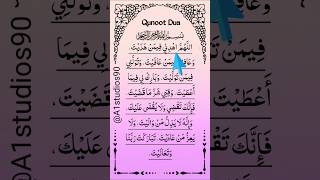 Qunoot Dua
بِسْمِ اللهِ الرَّحْمٰنِ الرَّحِيْمِ
اَللّٰهُمَّ اهْدِنِيْ فِيْمَنْ هَدَيْتَ،
وَعَافِنِيْ فِيْمَنْ عَافَيْتَ، وَتَوَلَّنِيْ
فِيْمَنْ تَوَلَّيْتَ، وَبَارِكْ لِيْ فِيْمَا
أَعْطَيْتَ، وَقِنِيْ شَرَّ مَا قَضَيْتَ،
فَإِنَّكَ تَقْضِيْ وَلَا يُقْضَى عَلَيْكَ،
وَإِنَّهُ لَا يَذِلُّ مَنْ وَالَيْتَ، وَلَا
يَعِزُّ مَنْ عَادَيْتَ، تَبَارَكْتَ رَبَّنَا
وَتَعَالَيْتَ.
@A1studios90